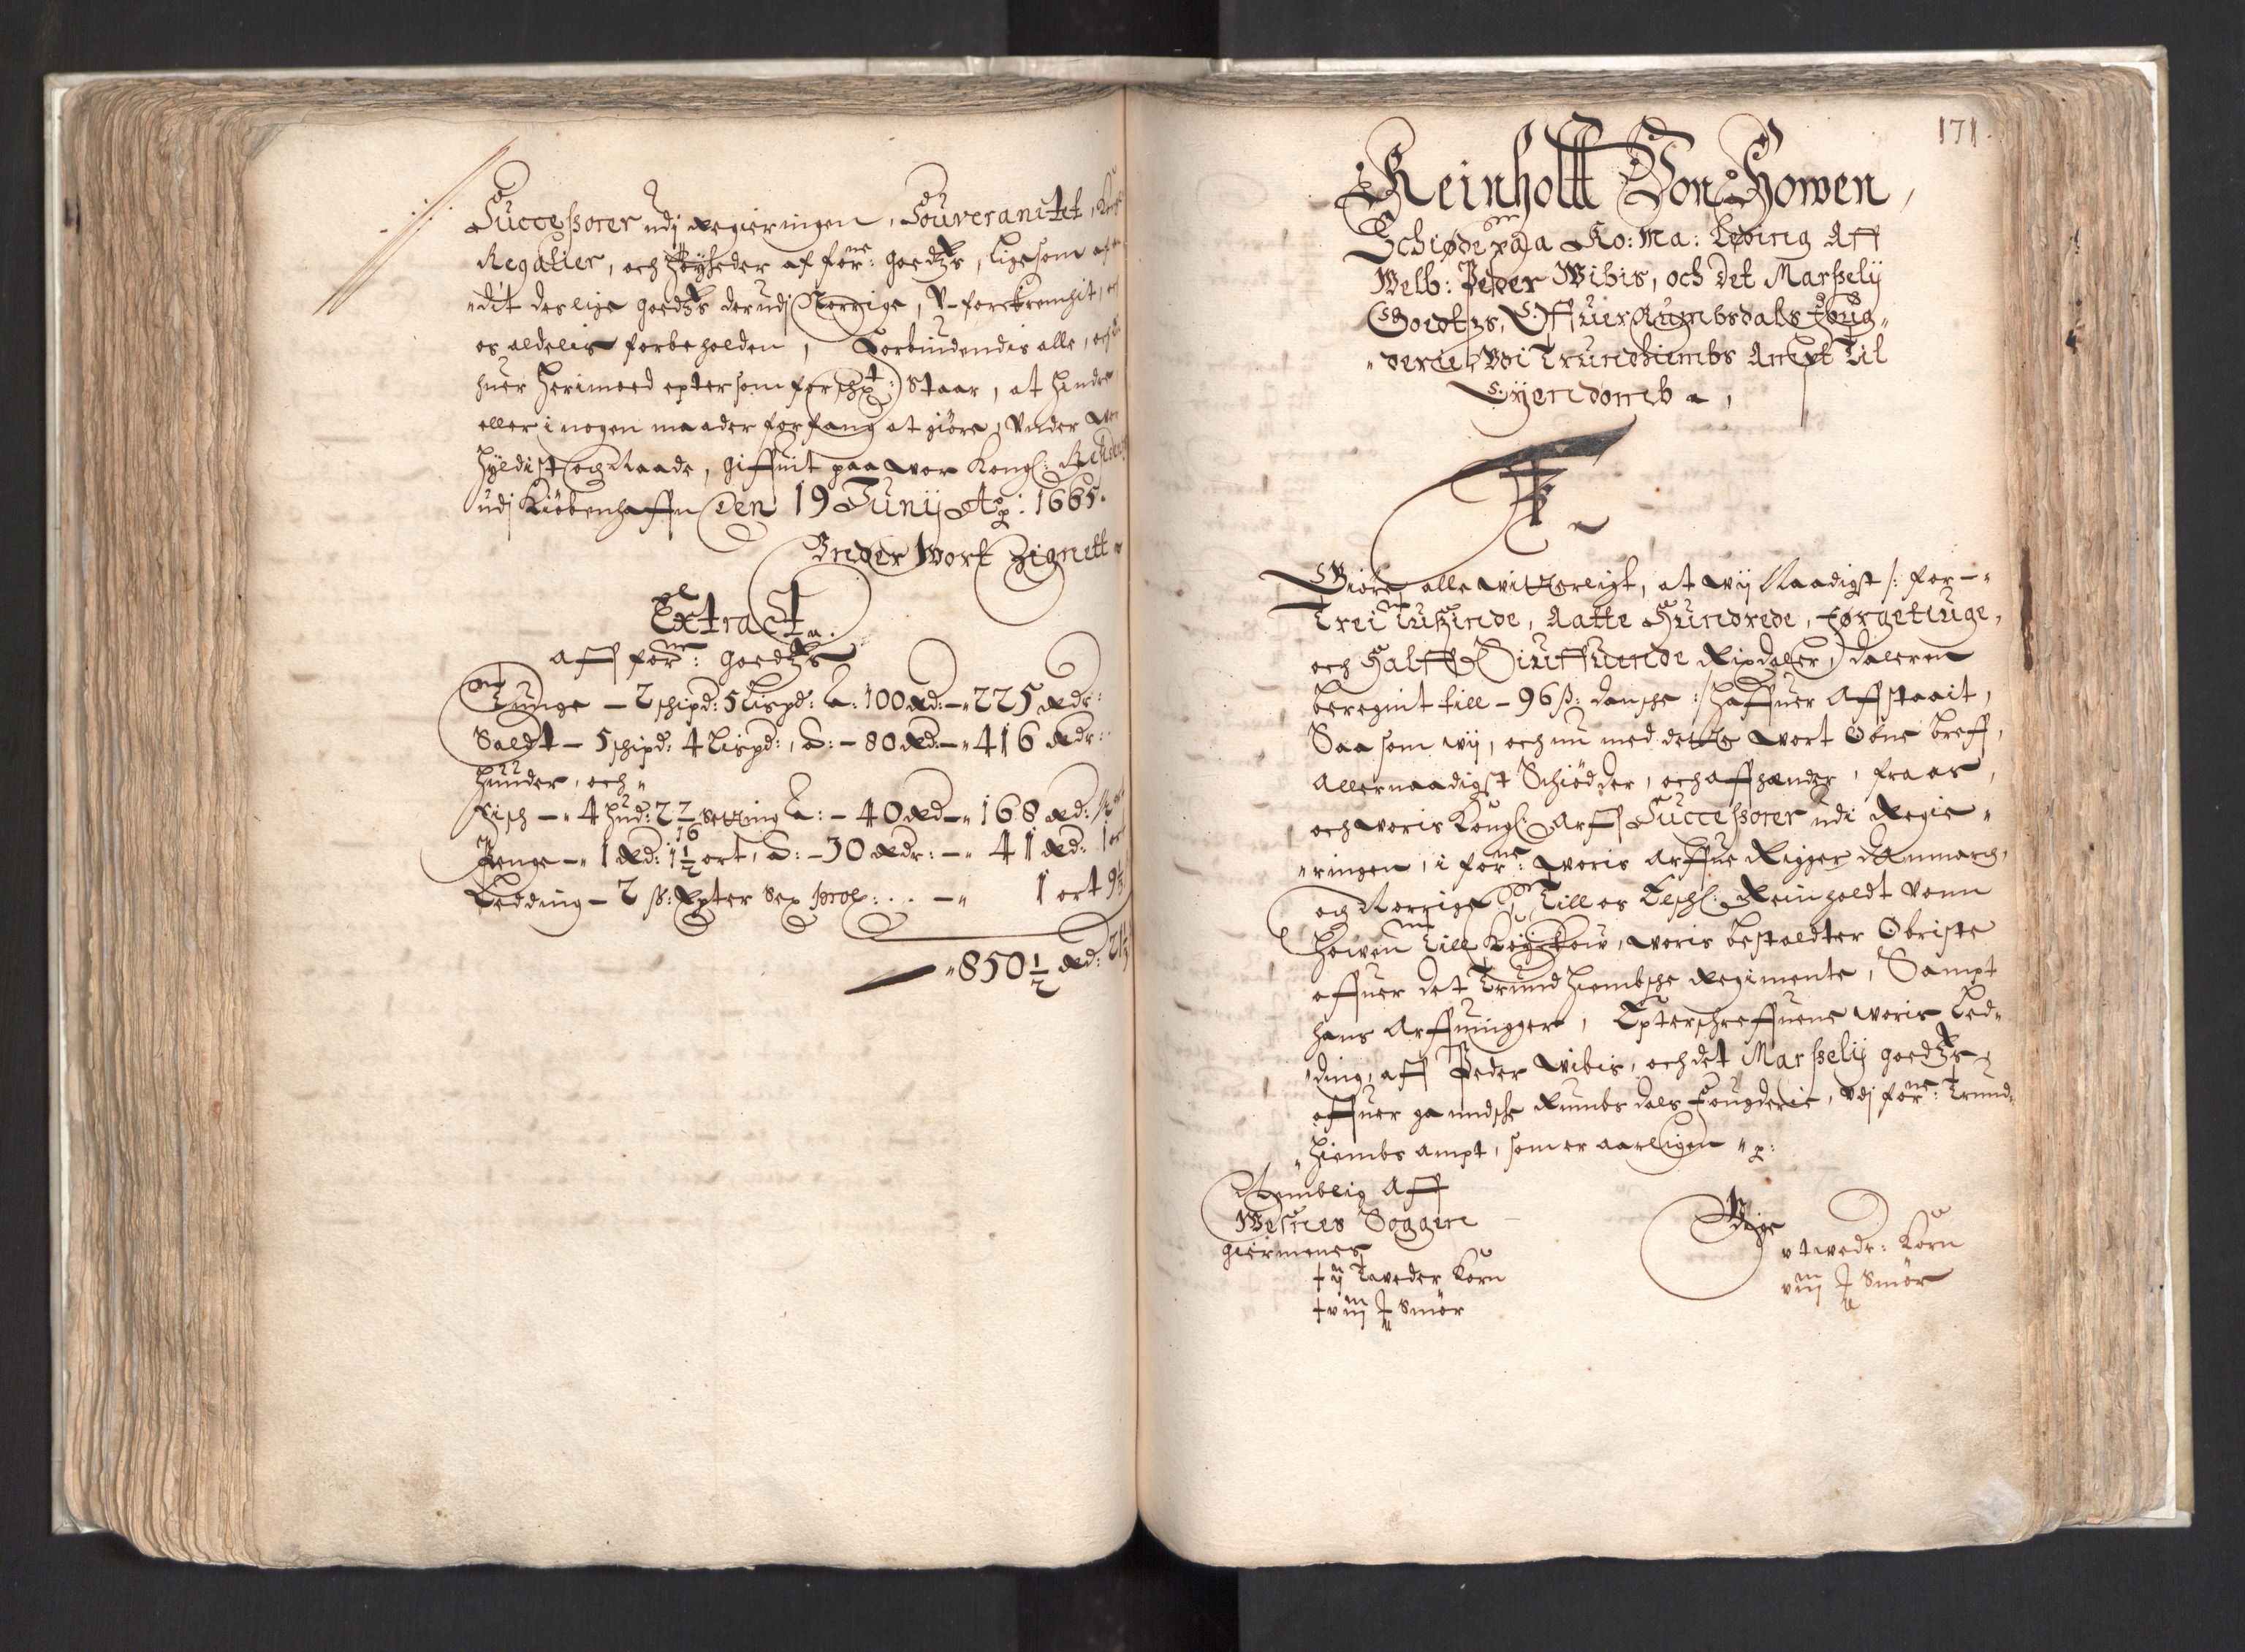 Successorer udj Regieringen, Souveranitet,
Regalier, och Høyheder af forne: goedtzs, ligesom af
dit deslige goedtzs der udj Norrige, V-forkrenchit,
os aldelis forbeholden, Forbiudendis alle, och
huer Herimoed epter som forschr: staar, at hindre
eller i nogen maader forfang at giøre, Vnder vor
hyldist och Naade, Giffuit paa vor Kongl: Residentz
udj Kiøbenhaffn Den 19 Junij Ao: 1665.
Under Wort Zignett
Extract
aff forne: goedtzs
Tunge — 2 schipd: 5 Lispd: a: 100 Rd: — 225 Rdr:
Saldt — 5 schipd: 4 Lispd:, a: — 80 Rd: — 416 Rdr:
Huuder, och
Fisch — 4 hud: 2 2/16 setting a: — 40 Rd — 168 Rd:
Penge — 1 Rd: 1 1/2 ort, a: — 30 Rdr: — 41 Rd: 1 ort
Ledding — 2 ß: Epter Sex proc: ... — 1 ort 9 1/3
850 1/2 Rd: 21 1/3
171.
Reinholtt Von Howen,
Schiøde paa Ko: Ma: Leding Aff
Welb: Peder Wibis, och Det Marßelij
Goedtzs, Offuer Rumbsdals Foug-
derie, Vdi Trundhiembs Ampt Til
Eijendomb,
F
Giøre alle witterligt, at wij Naadigst /: for —
Trei Tußinde, Aatte Hundrede, Førgetiuge,
och Halff Siuffuende Rixdaler, daleren
beregnit till — 96 ß: dansche :/ haffuer Affstaait,
Saa som wij, och nu med dette wort Obne breff,
Allernaadigst Schiødder, och affhænder, fra os,
och woris Kongl: Arff Successorer udi Regie-
ringen, i forne: woris Arffue Rigger Danmarch,
och Norrige Till os Elschl: Reinholdt vonn
Howen till, woris bestaldter Obriste
offuer det Trundhiembsche Regimente, Sampt
hans Arffuingger, Epterschreffuene woris Led-
ding, aff Peder Wibis, och det Marßelij goedtzs
offuer gandsche Rumbsdals Fougderie, vdj forne: Trund-
hiembs ampt, som er aarligen
Nemblig Aff
Weßnes Soggen
Giermenes
ij waeder Korn
viij Smør
Wige
v wedr: Korn
viij Smør